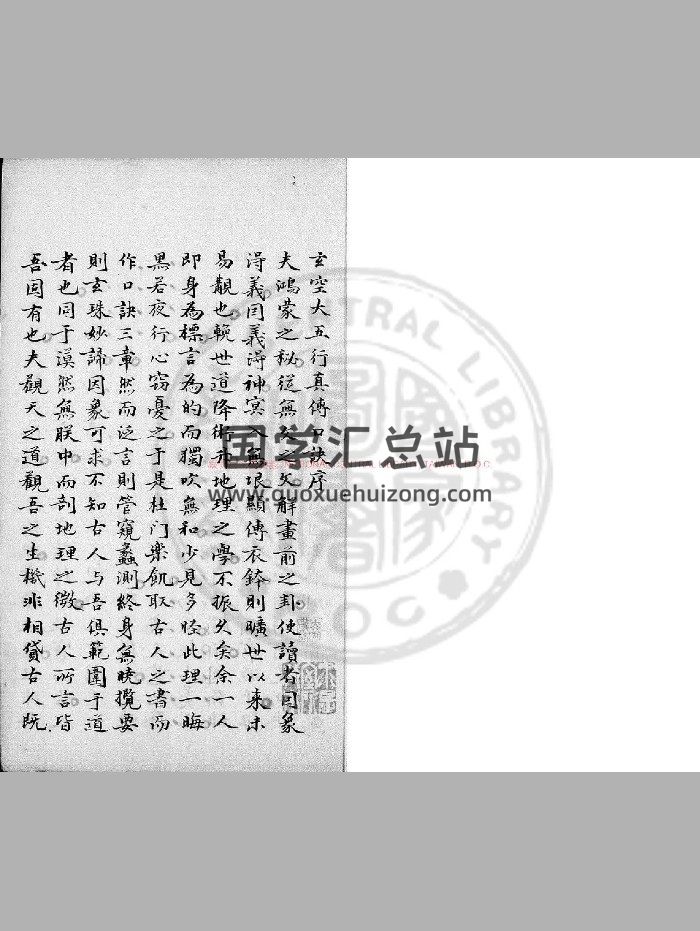 玄空大五行真傳口訣序
夫鴻蒙之秘從無文之文解畫前之卦使讀者因象
淂義因義淂神冥無垠顯傳衣鉢則曠世以来未
易觀也輓世道降術升地理之學不振久矣余一人
即身為標言為的而獨吹無和少見多怪此理一晦
黒若夜行心窃憂之于是杜門樂飢取古人之書而
作口訣三章然而泛言則管窺蠡測終身無曉攬要
則玄珠妙諦因象可求不知古人与吾俱範圍于道
者也同于漠然無朕中而剖地理之微古人所言皆
吾固有也夫觀天之道觀吾之生機非相貸古人既
国学汇总站
www.guoxuehuizong.com